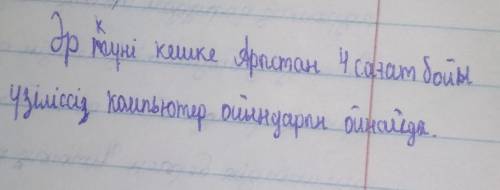 Әр күні кешке Арыстан 4 сағат бойы
үзіліссіз компьютер ойындарын ойнайды.